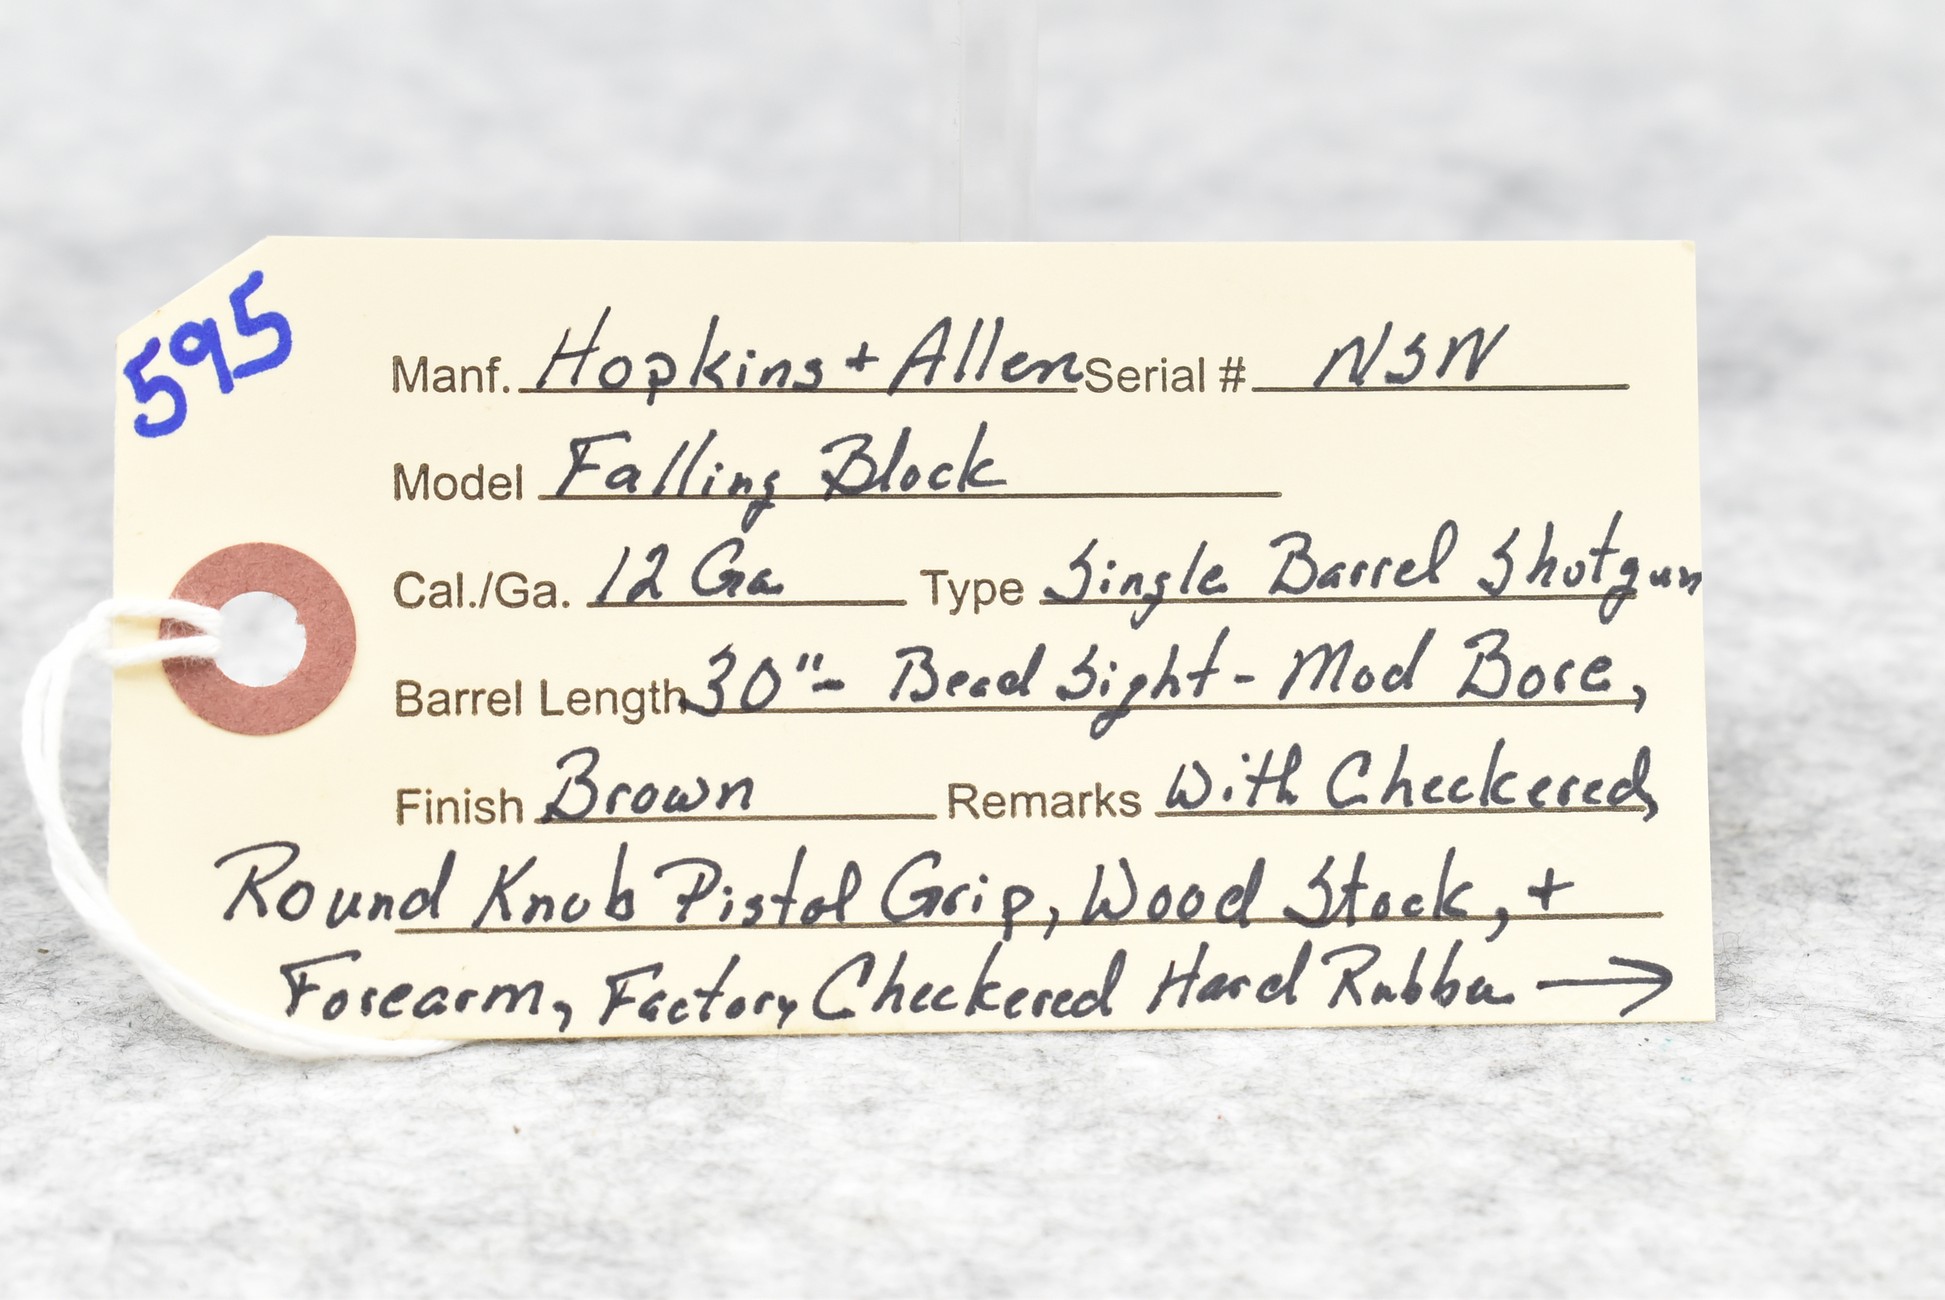 595
Manf. Hopkins + Allen Serial # NSN
Model Falling Block
Cal./Ga. 12 Ga Type Single Barrel Shotgun
Barrel Length 30"- Bead Sight - Mod Bore,
Finish Brown Remarks With Checkered,
Round Knob Pistol Grip, Wood Stock, +
Forearm, Factory Checkered Hard Rubber →